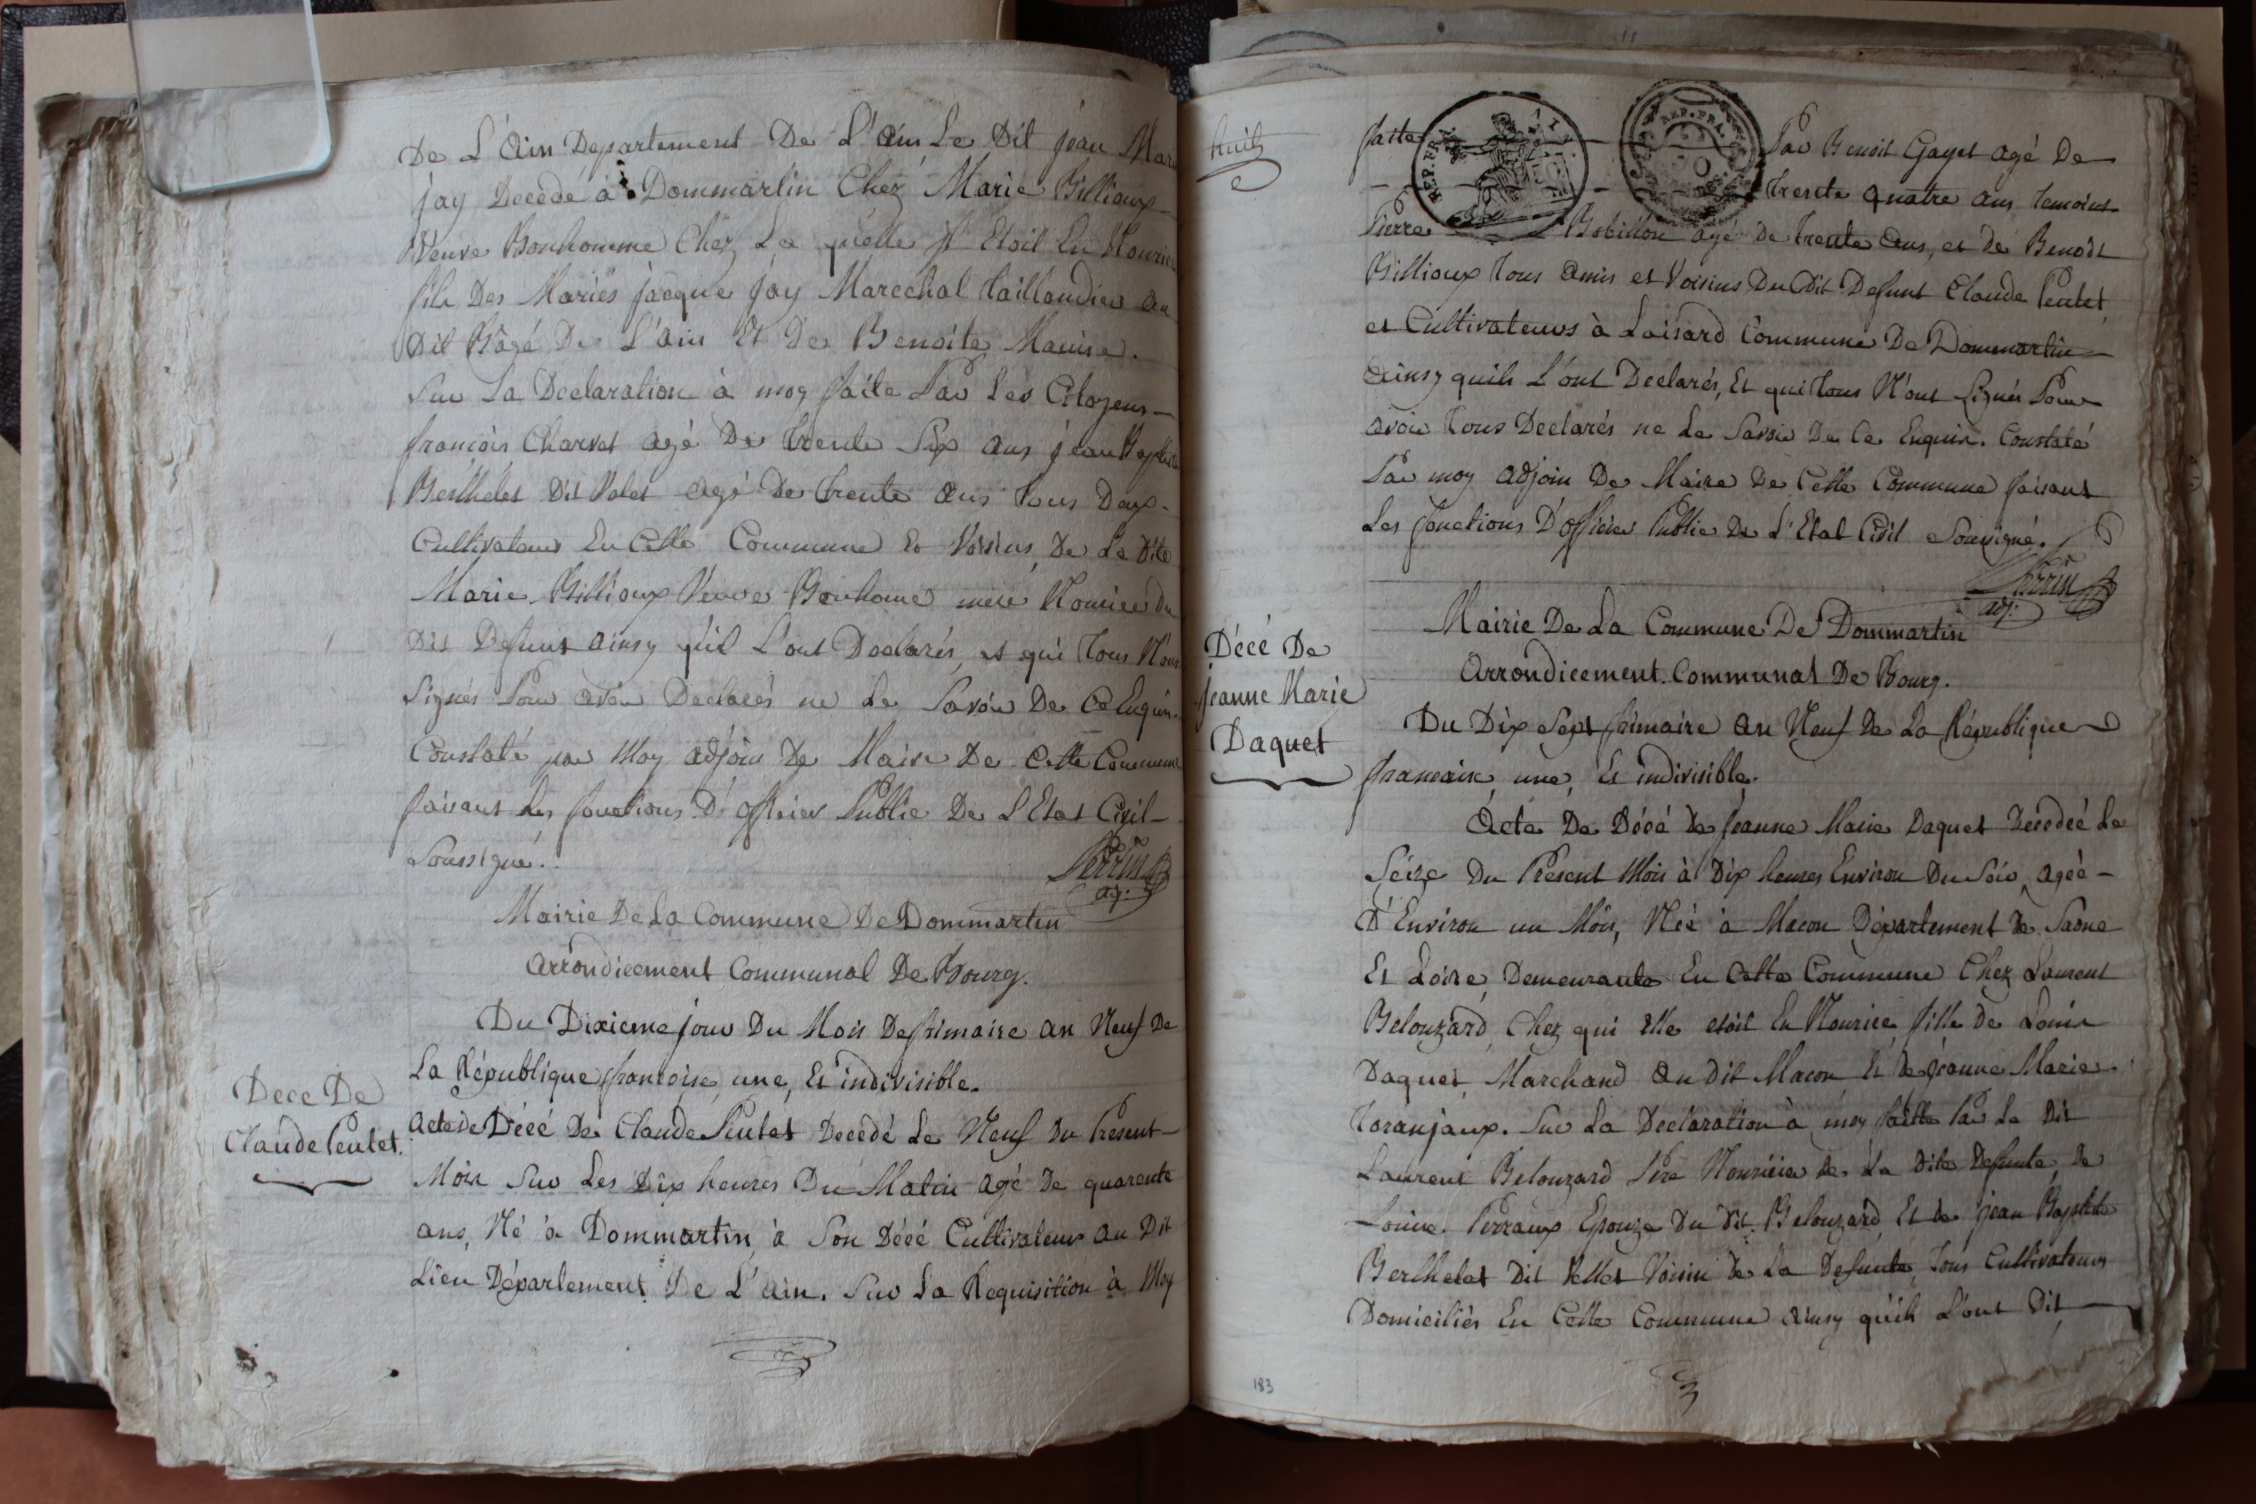 De L'ain Departement De L'ain Le Dit jean Marie
jay Decedé à Dommartin Chez Marie Billioux
Veuve Bonhomme Chez La quelle Il Etoit En Nourrice
fils Des Mariés jacque jay Marechal Taillandier au
Dit Bagé De L'ain Et De Benoite
Sur La Declaration à moy faite Par Les Citoyens
françois Charvet agé De trente Six ans jean Baptiste
Berthelet Dit Velet agé De trente ans tous Deux
Cultivateurs En Cette Commune Et Voisins De La Dite
Marie Billioux Veuve Bonhome mere Nourice Du
Dit Defunt ainsy qu'il L'ont Declarés, et qui tous N'ont
Signés Pour avoir Declarés ne Le Savoir De Ce Enquis.
Constaté par Moy adjoin De Maire De Cette Commune
faisant Les fonctions D'officier Public De L'Etat Civil
Soussigné.
Perrin
adj.
Mairie De La Commune De Dommartin
arrondicement Communal De Bourg.
Du Dixieme jour Du Mois De frimaire an Neuf De
La République françoise, une, Et indivisible.
Dece De
Claude Peulet.
acte de Décé De Claude Peulet Decedé Le Neuf Du Present
Mois Sur Les Dix heures Du Matin agé De quarente
ans, Né à Dommartin, à Son Décé Cultivateur au Dit
Lieu Département De L'ain. Sur La Requisition à Moy
huit
faite Par Benoit Gayet agé De
REP. FRA.
REP. FRA.
trente quatre ans temoins
Pierre Bobillon agé De trente ans, et De Benoit
Billioux tous amis et Voisins Du Dit Defunt Claude Peulet,
et Cultivateurs à Loisard Commune De Dommartin
ainsy quils L'ont Declarés, Et qui tous N'ont Signés Pour
avoir tous Declarés ne Le Savoir De Ce Enquis. Constaté
Par moy adjoin De Maire De Cette Commune faisant
Les fonctions D'officier Public De L'Etat Civil Soussigné.
Perrin
adj.
Mairie De La Commune De Dommartin
arrondicement Communal De Bourg.
Décé De
jeanne Marie
Daquet
Du Dix Sept frimaire an Neuf De La République
francaise, une, Et indivisible.
Acte De Décé De jeanne Marie Daquet Decedeé Le
Séize Du Présent Mois à Dix heures Environ Du Soir, ageé
D'Environ un Mois, Neé à Macon Département De Saone
Et Loire, Demeurante En Cette Commune Chez Laurent
Belouzard, Chez qui Elle etoit En Nourice, fille De Louis
Daquet, Marchand au Dit Macon Et De jeanne Marie
Toranjaux. Sur La Declaration à moy faitte Par Le Dit
Laurent Belouzard Pere Nouricier De La Dite Defunte, De
Louise Perraux Epouze Du Dit Belouzard, Et De jean Baptiste
Berthelet Dit Vellet Voisin De La Defunte, tous Cultivateurs
Domiciliés En Cette Commune ainsy qu'ils L'ont Dit,
183